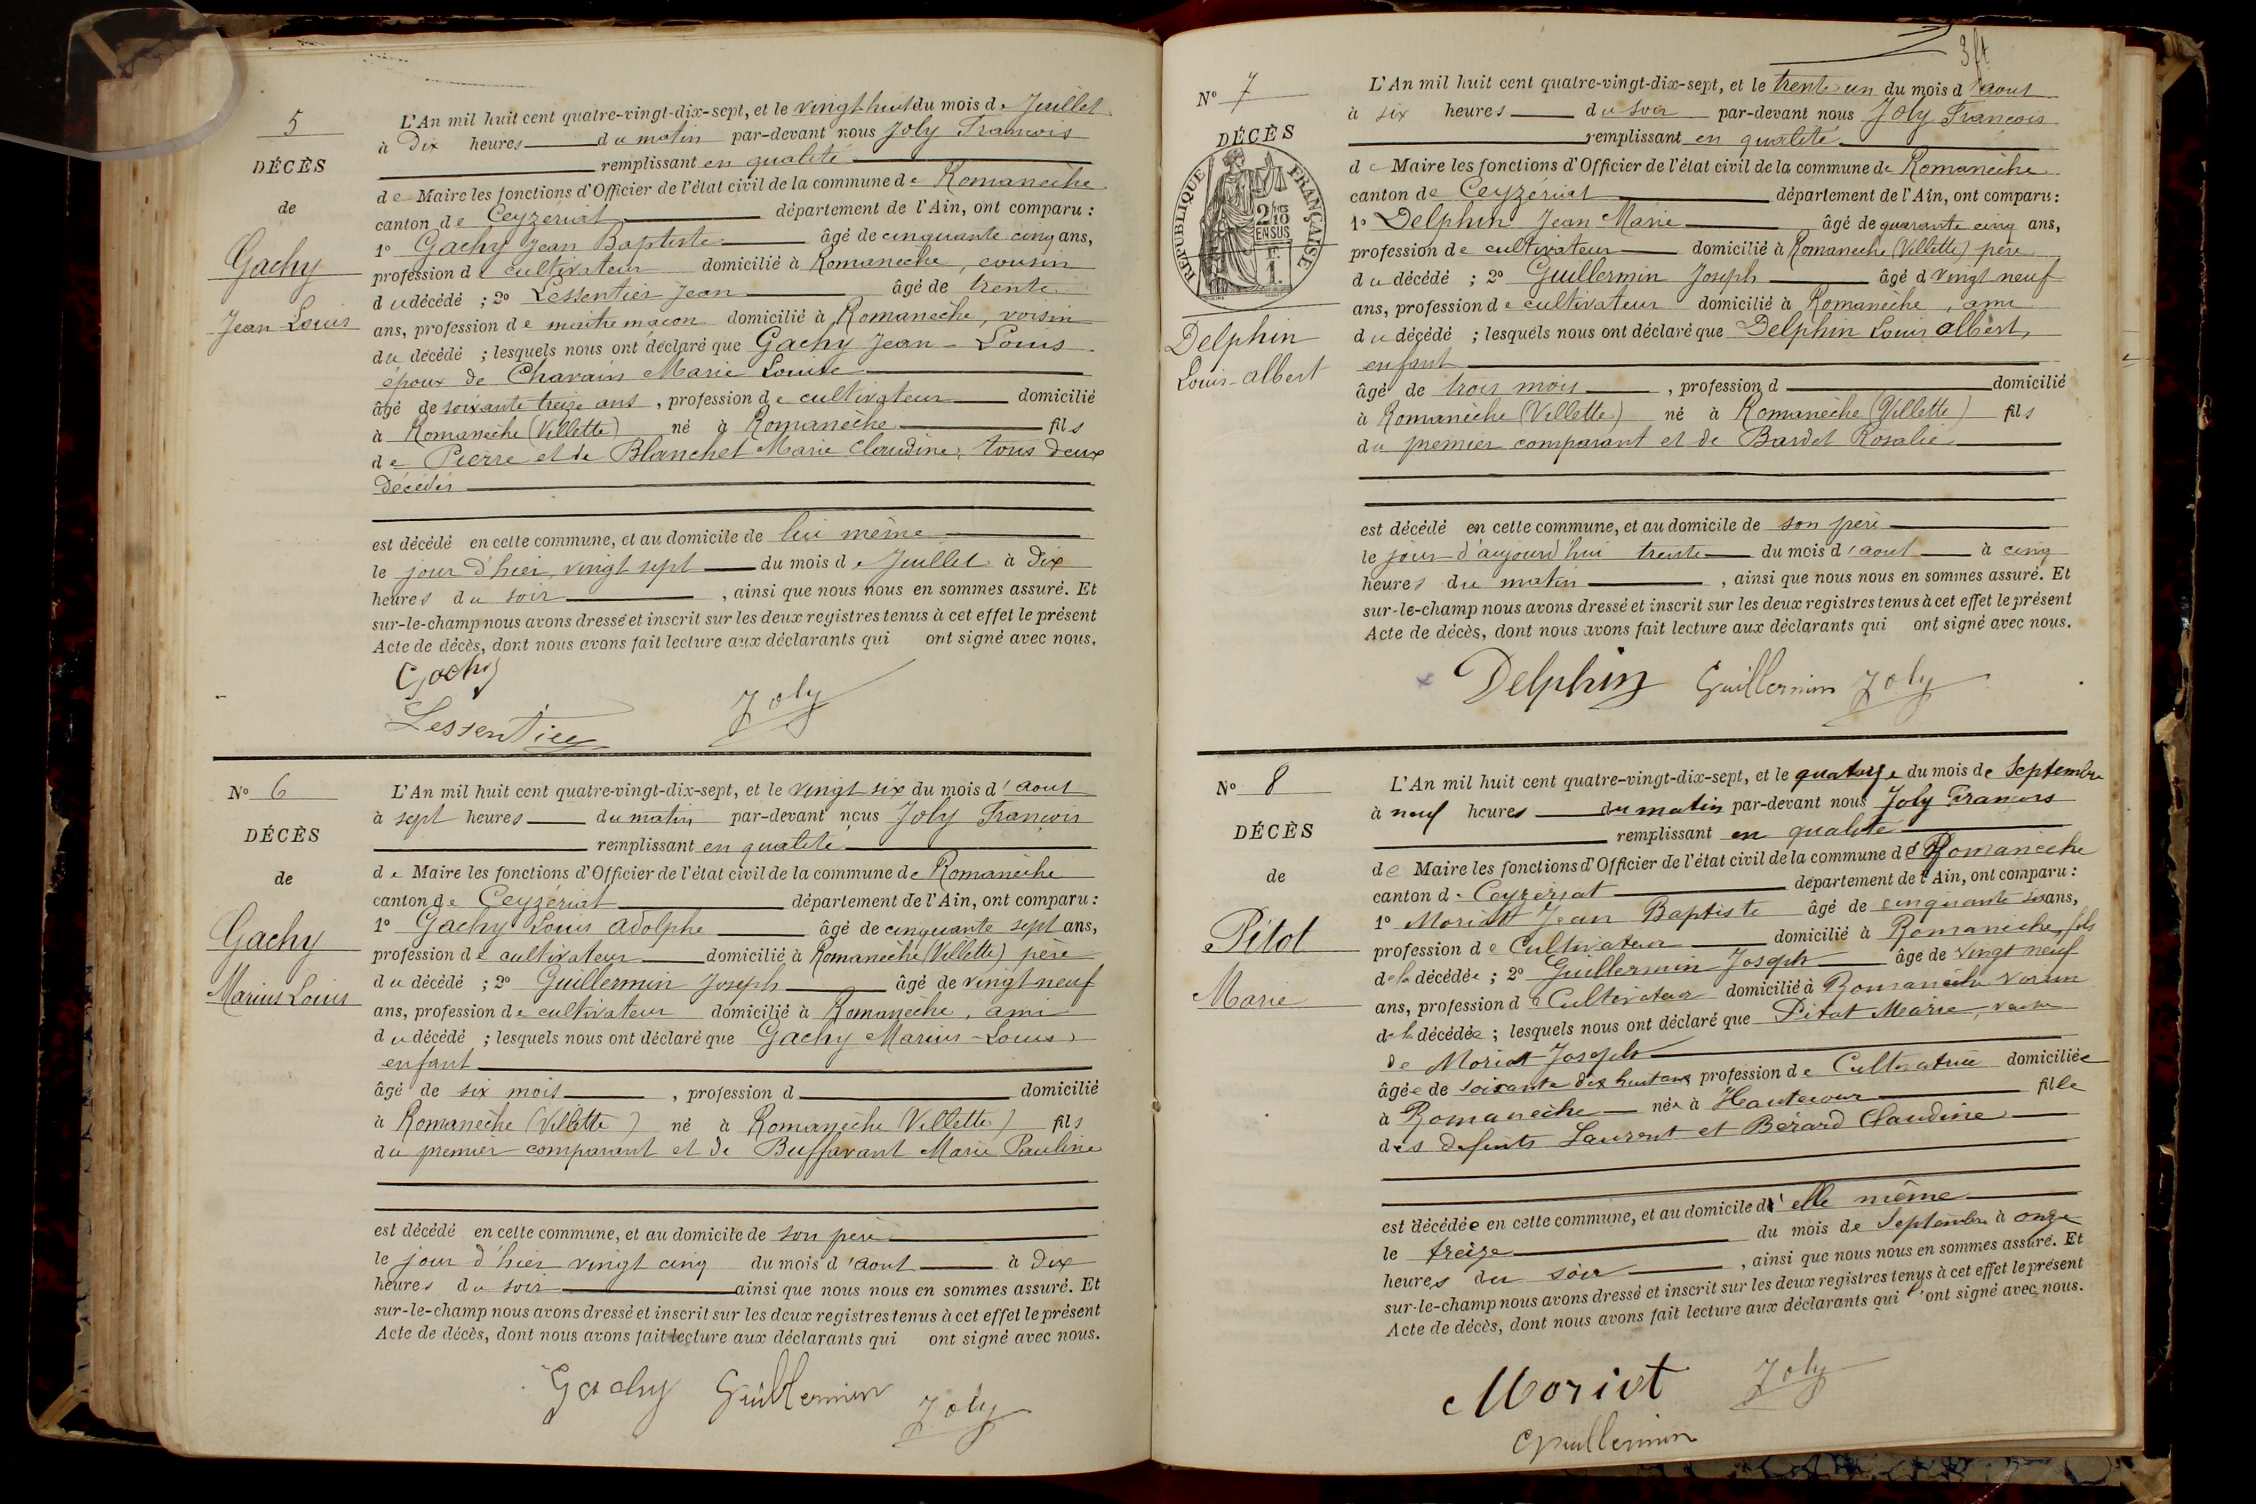 5
DÉCÈS
de
Gachy
Jean Louis
L'An mil huit cent quatre-vingt-dix-sept, et le vingt huit du mois de Juillet
à Dix heures du matin par-devant nous Joly François
remplissant en qualité
de Maire les fonctions d'Officier de l'état civil de la commune de Romanèche
canton de Ceyzériat département de l'Ain, ont comparu :
1º Gachy Jean Baptiste âgé de cinquante cinq ans,
profession de cultivateur domicilié à Romanèche, cousin
du décédé ; 2º Lessentier Jean âgé de trente
ans, profession de maitre maçon domicilié à Romanèche, voisin
du décédé ; lesquels nous ont déclaré que Gachy Jean-Louis
époux de Chavain Marie Louise
âgé de soixante treize ans, profession de cultivateur domicilié
à Romanèche (Villette) né à Romanèche fils
de Pierre et de Blanchet Marie Claudine, tous deux
Décédés
est décédé en cette commune, et au domicile de lui même
le jour d'hier, vingt sept du mois de Juillet à Dix
heures du soir, ainsi que nous nous en sommes assuré. Et
sur-le-champ nous avons dressé et inscrit sur les deux registres tenus à cet effet le présent
Acte de décès, dont nous avons fait lecture aux déclarants qui ont signé avec nous.
Gachy
Lessentier Joly
Nº 6
DÉCÈS
de
Gachy
Marius Louis
L'An mil huit cent quatre-vingt-dix-sept, et le vingt six du mois d'aout
à sept heures du matin par-devant nous Joly François
remplissant en qualité
de Maire les fonctions d'Officier de l'état civil de la commune de Romanèche
canton de Ceyzériat département de l'Ain, ont comparu :
1º Gachy Louis adolphe âgé de cinquante sept ans,
profession de cultivateur domicilié à Romanèche (Villette) père
du décédé ; 2º Guillermin Joseph âgé de vingt neuf
ans, profession de cultivateur domicilié à Romanèche, ami
du décédé ; lesquels nous ont déclaré que Gachy Marius-Louis,
enfant
âgé de six mois, profession d domicilié
à Romanèche (Villette) né à Romanèche (Villette) fils
du premier comparant et de Buffavant Marie Pauline
est décédé en cette commune, et au domicile de son père
le jour d'hier vingt cinq du mois d'aout à Dix
heures du soir ainsi que nous nous en sommes assuré. Et
sur-le-champ nous avons dressé et inscrit sur les deux registres tenus à cet effet le présent
Acte de décès, dont nous avons fait lecture aux déclarants qui ont signé avec nous.
Gachy Guillermin Joly
Nº 7
DÉCÈS
RÉPUBLIQUE FRANÇAISE
2/10
EN SUS
1 F.
Delphin
Louis-albert
L'An mil huit cent quatre-vingt-dix-sept, et le trente un du mois d'aout
à six heures du soir par-devant nous Joly François
remplissant en qualité
de Maire les fonctions d'Officier de l'état civil de la commune de Romanèche
canton de Ceyzériat département de l'Ain, ont comparu :
1º Delphin Jean Marie âgé de quarante cinq ans,
profession de cultivateur domicilié à Romanèche (Villette) père
du décédé ; 2º Guillermin Joseph âgé d vingt neuf
ans, profession de cultivateur domicilié à Romanèche, ami
du décédé ; lesquels nous ont déclaré que Delphin Louis albert,
enfant
âgé de trois mois, profession d domicilié
à Romanèche (Villette) né à Romanèche (Villette) fils
du premier comparant et de Bardet Rosalie
est décédé en cette commune, et au domicile de son père
le jour d'aujourd'hui trente du mois d'aout à cinq
heures du matin, ainsi que nous nous en sommes assuré. Et
sur-le-champ nous avons dressé et inscrit sur les deux registres tenus à cet effet le présent
Acte de décès, dont nous avons fait lecture aux déclarants qui ont signé avec nous.
Delphin Guillermin Joly
Nº 8
DÉCÈS
de
Pitot
Marie
L'An mil huit cent quatre-vingt-dix-sept, et le quatorze du mois de Septembre
à neuf heures du matin par-devant nous Joly François
remplissant en qualité
de Maire les fonctions d'Officier de l'état civil de la commune de Romanèche
canton de Ceyzeriat département de l'Ain, ont comparu :
1º Moriat Jean Baptiste âgé de cinquante six ans,
profession de Cultivateur domicilié à Romanèche, fils
de la décédée ; 2º Guillermin Joseph âgé de vingt neuf
ans, profession de Cultivateur domicilié à Romanèche voisin
de la décédée ; lesquels nous ont déclaré que Pitot Marie, veuve
de Moriat Joseph
âgée de soixante dix huit ans profession de Cultivatrice domiciliée
à Romanèche née à Hautecour fille
des défunts Laurent et Bérard Claudine
est décédée en cette commune, et au domicile d'elle même
le treize du mois de Septembre à onze
heures du soir, ainsi que nous nous en sommes assuré. Et
sur-le-champ nous avons dressé et inscrit sur les deux registres tenus à cet effet le présent
Acte de décès, dont nous avons fait lecture aux déclarants qui ont signé avec nous.
Moriat Joly
Guillermin